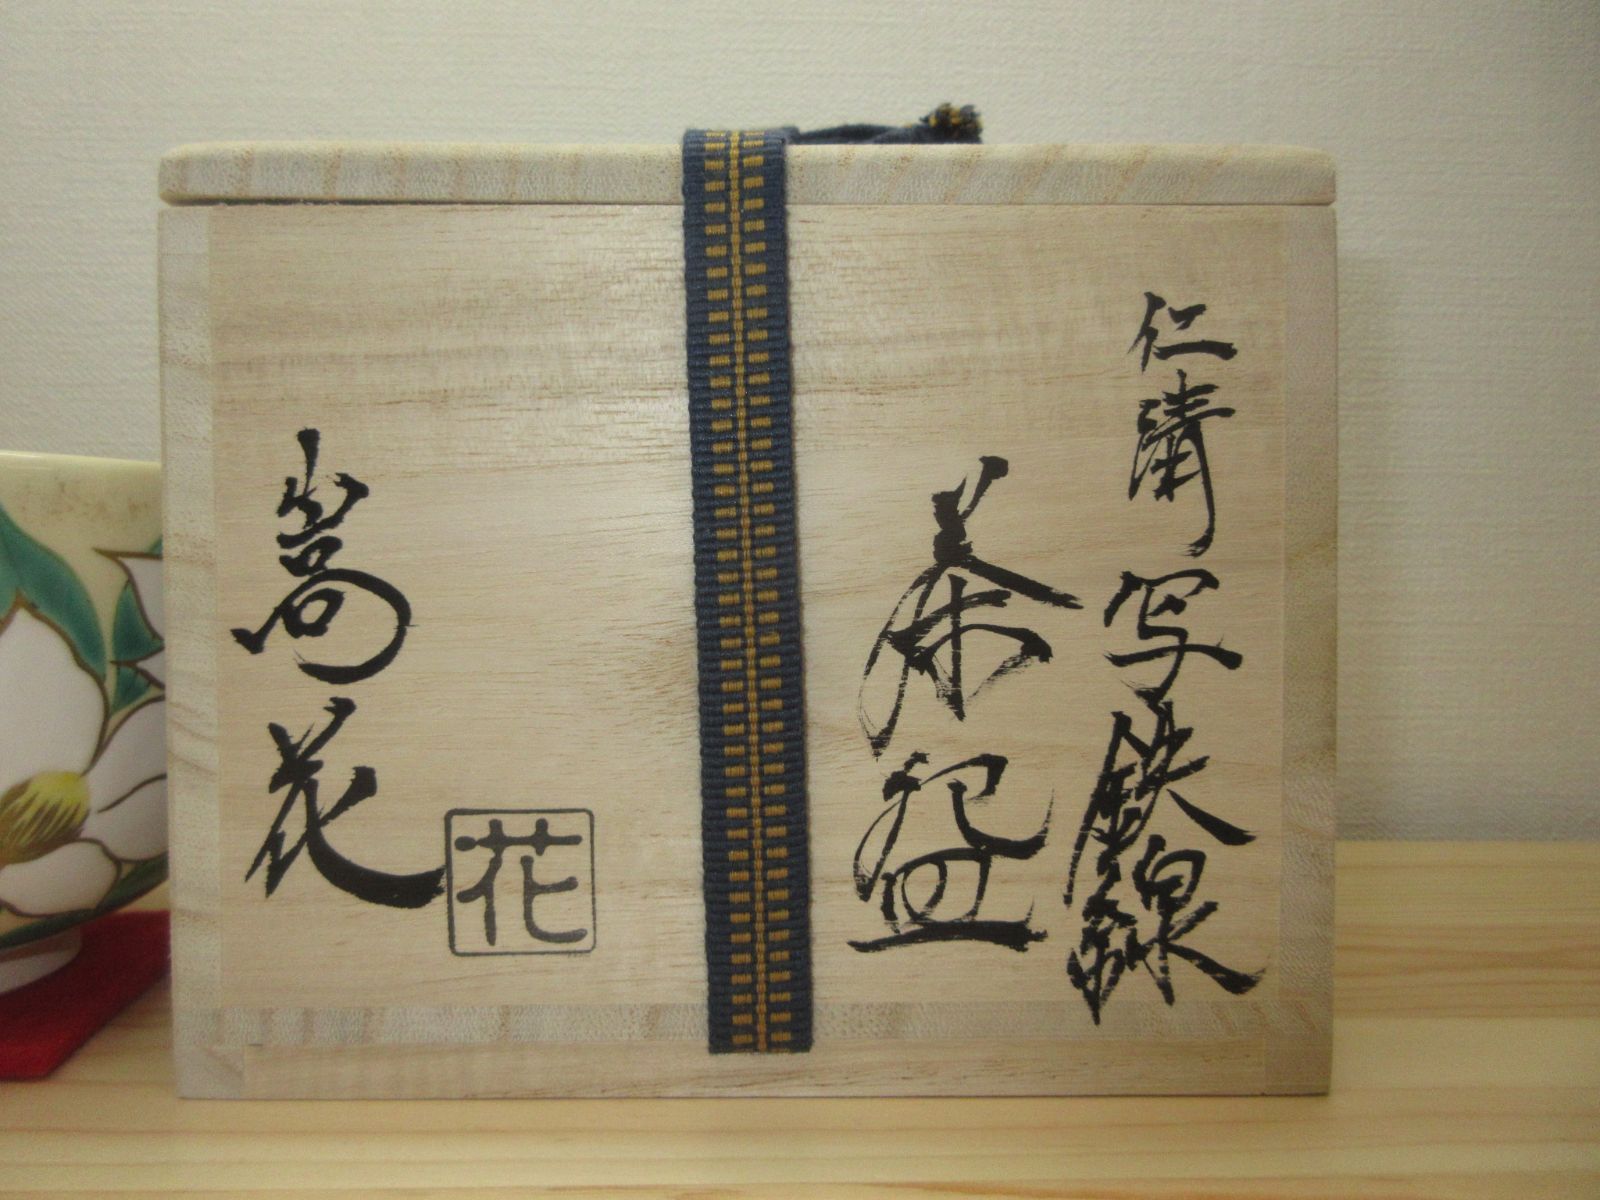 仁清写鉄線
茶碗
嵩花
花